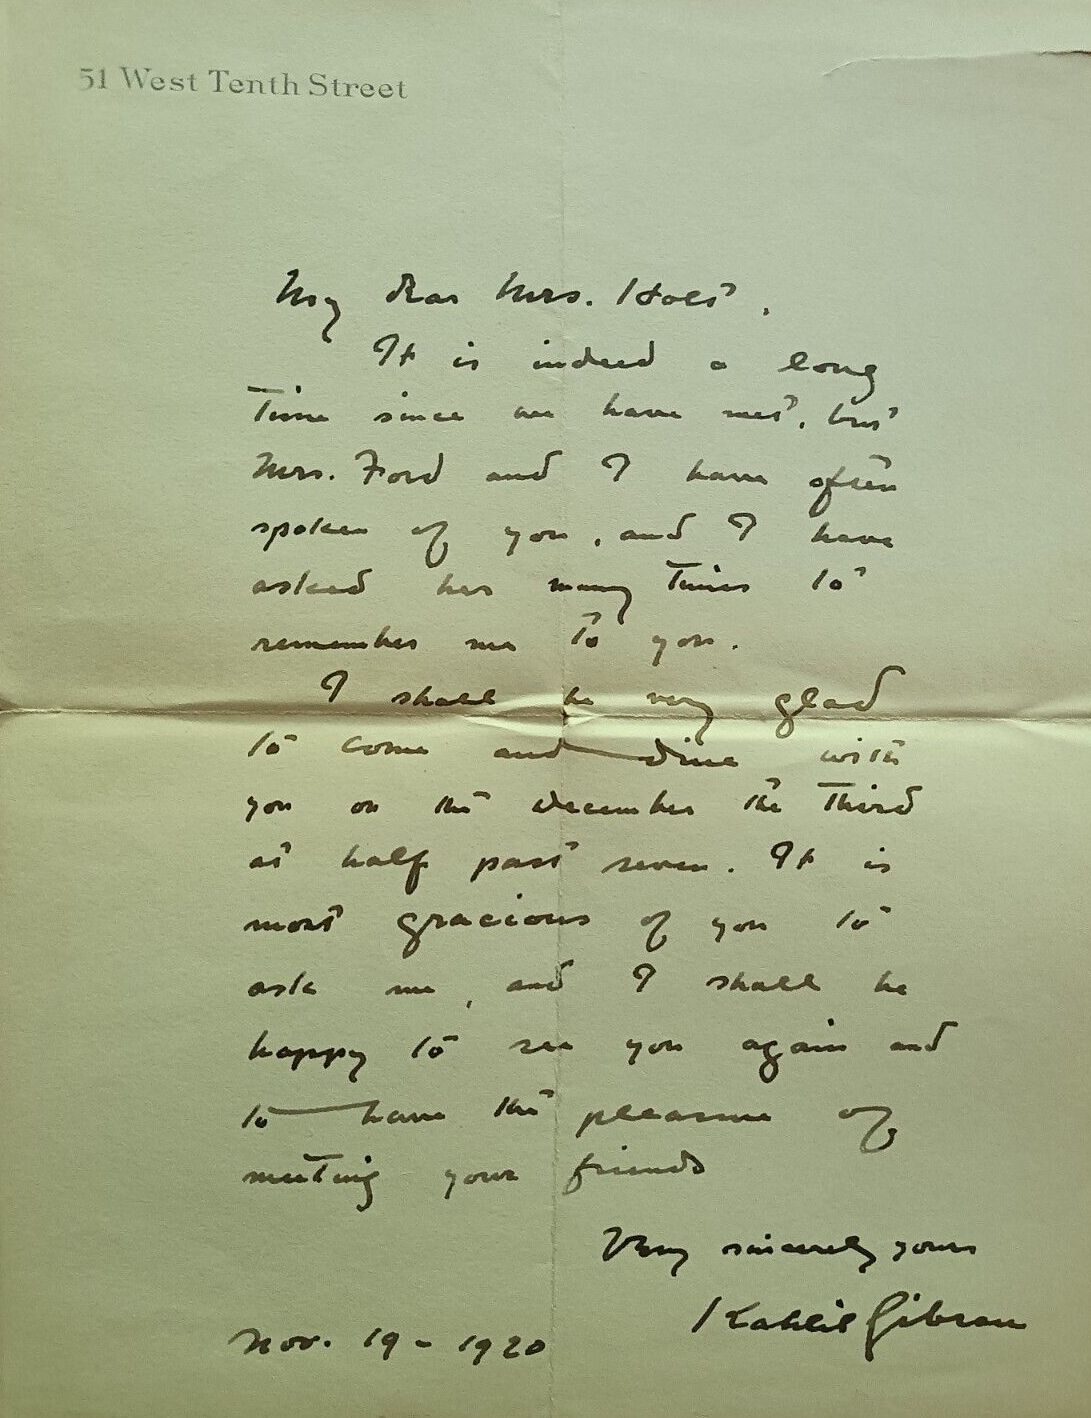 51 West Tenth Street
My dear Mrs. Holt,
It is indeed a long
time since we have met, but
Mrs. Ford and I have often
spoken of you, and I have
asked her many times to
remember me to you.
I shall be very glad
to come and dine with
you on the December the third
at half past seven. It is
most gracious of you to
ask me, and I shall be
happy to see you again and
to have the pleasure of
meeting your friends
Very sincerely yours
Kahlil Gibran
Nov. 19 - 1920